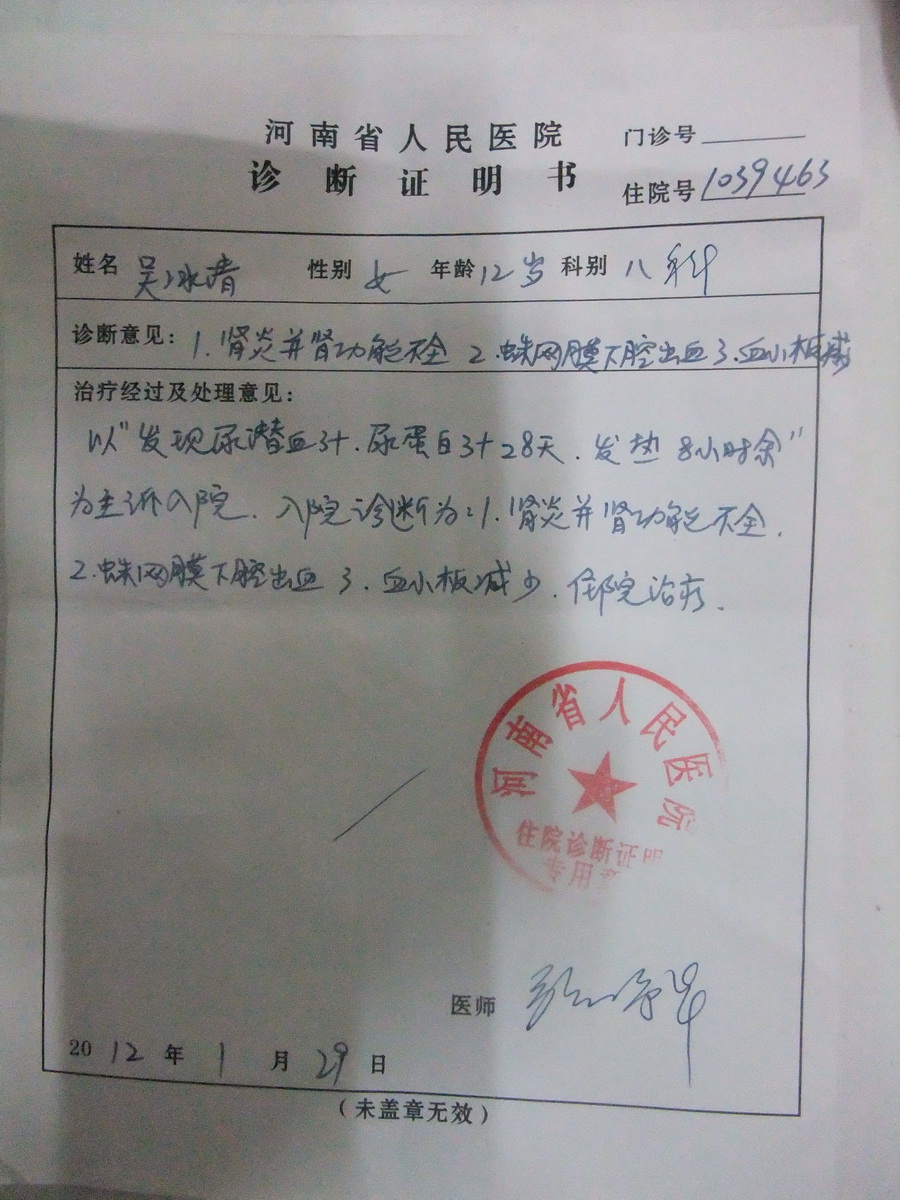 河南省人民医院
门诊号
诊断证明书
住院号 1039463
姓名 吴冰清 性别 女 年龄 12岁 科别 八科
诊断意见: 1.肾炎并肾功能不全 2.蛛网膜下腔出血 3.血小板减少
治疗经过及处理意见:
以"发现尿潜血3+.尿蛋白3+28天.发热8小时余"
为主诉入院.入院诊断为:1.肾炎并肾功能不全.
2.蛛网膜下腔出血 3.血小板减少.住院治疗.
河南省人民医院
住院诊断证明
专用章
医师
2012年1月29日
(未盖章无效)